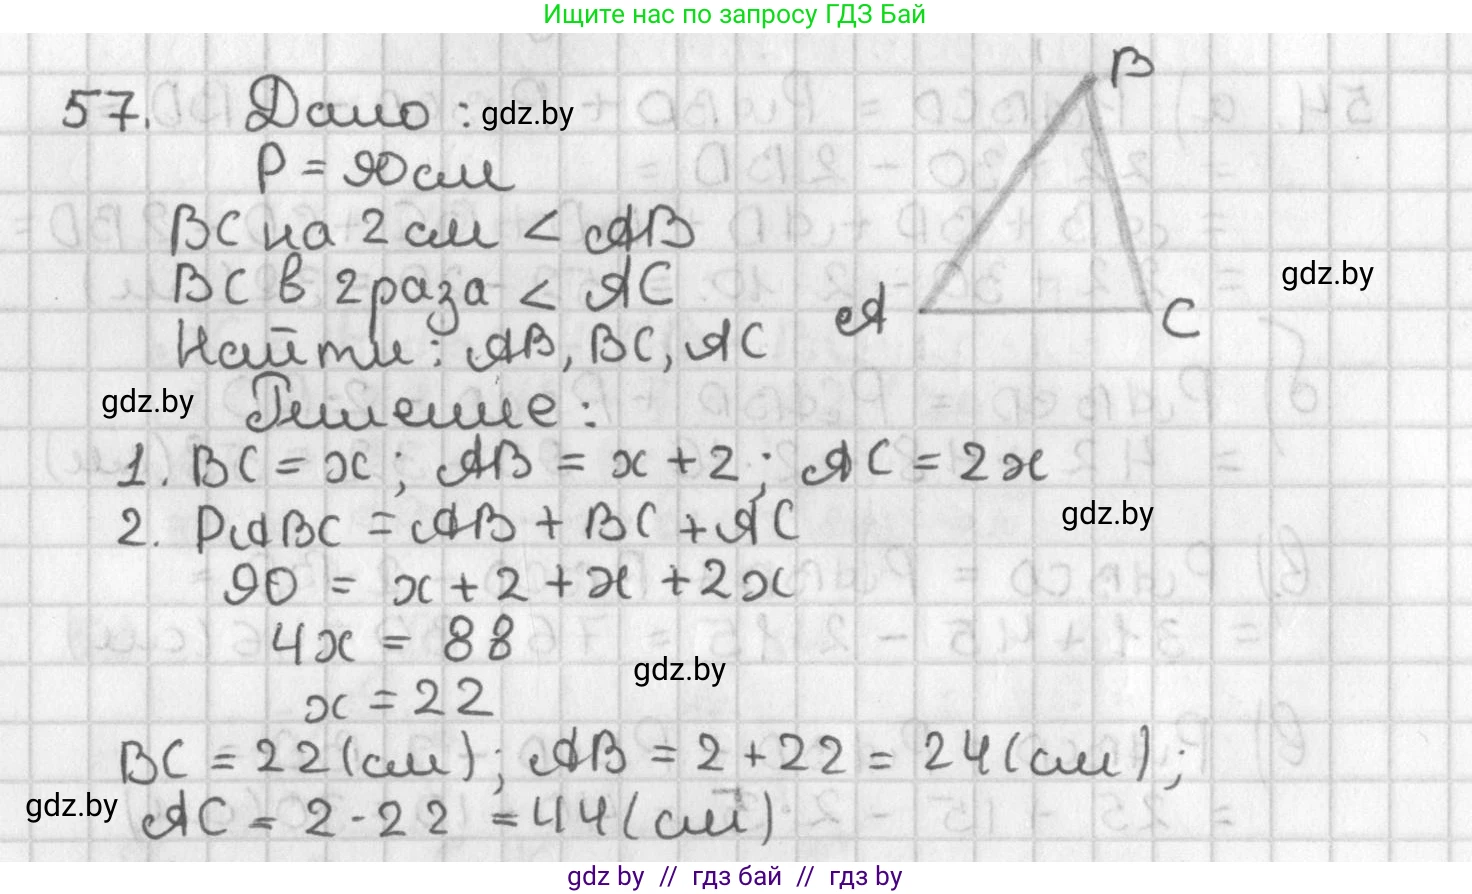 Ищите нас по запросу ГДЗ Бай
57. Дано: gdz.by
P = 90 см
BC на 2 см < AB
BC в 2 раза < AC
Найти: AB, BC, AC
B
A
C
gdz.by
gdz.by
Решение:
1. BC = x; AB = x + 2; AC = 2x
gdz.by
2. PABC = AB + BC + AC
90 = x + 2 + x + 2x
4x = 88
gdz.by
x = 22
BC = 22 (см); AB = 2 + 22 = 24 (см);
gdz.by
AC = 2 · 22 = 44 (см)
gdz by // гдз бай // гдз by